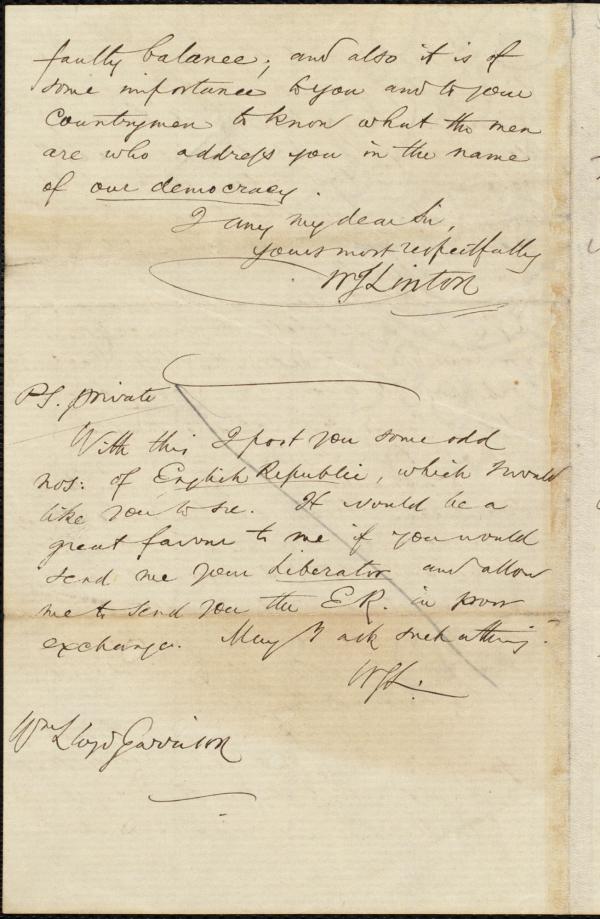 faulty balance; and also it is of
some importance to you and to your
Countrymen to know what the men
are who address you in the name
of our democracy.
I am, my dear Sir,
yours most respectfully
WJLinton
PS. private
With this I post you some odd
nos: of English Republic, which I would
like you to see. It would be a
great favour to me if you would
send me your Liberator and allow
me to send you the E.R. in poor
exchange. May I ask such a thing?
WJL.
Wm Lloyd Garrison